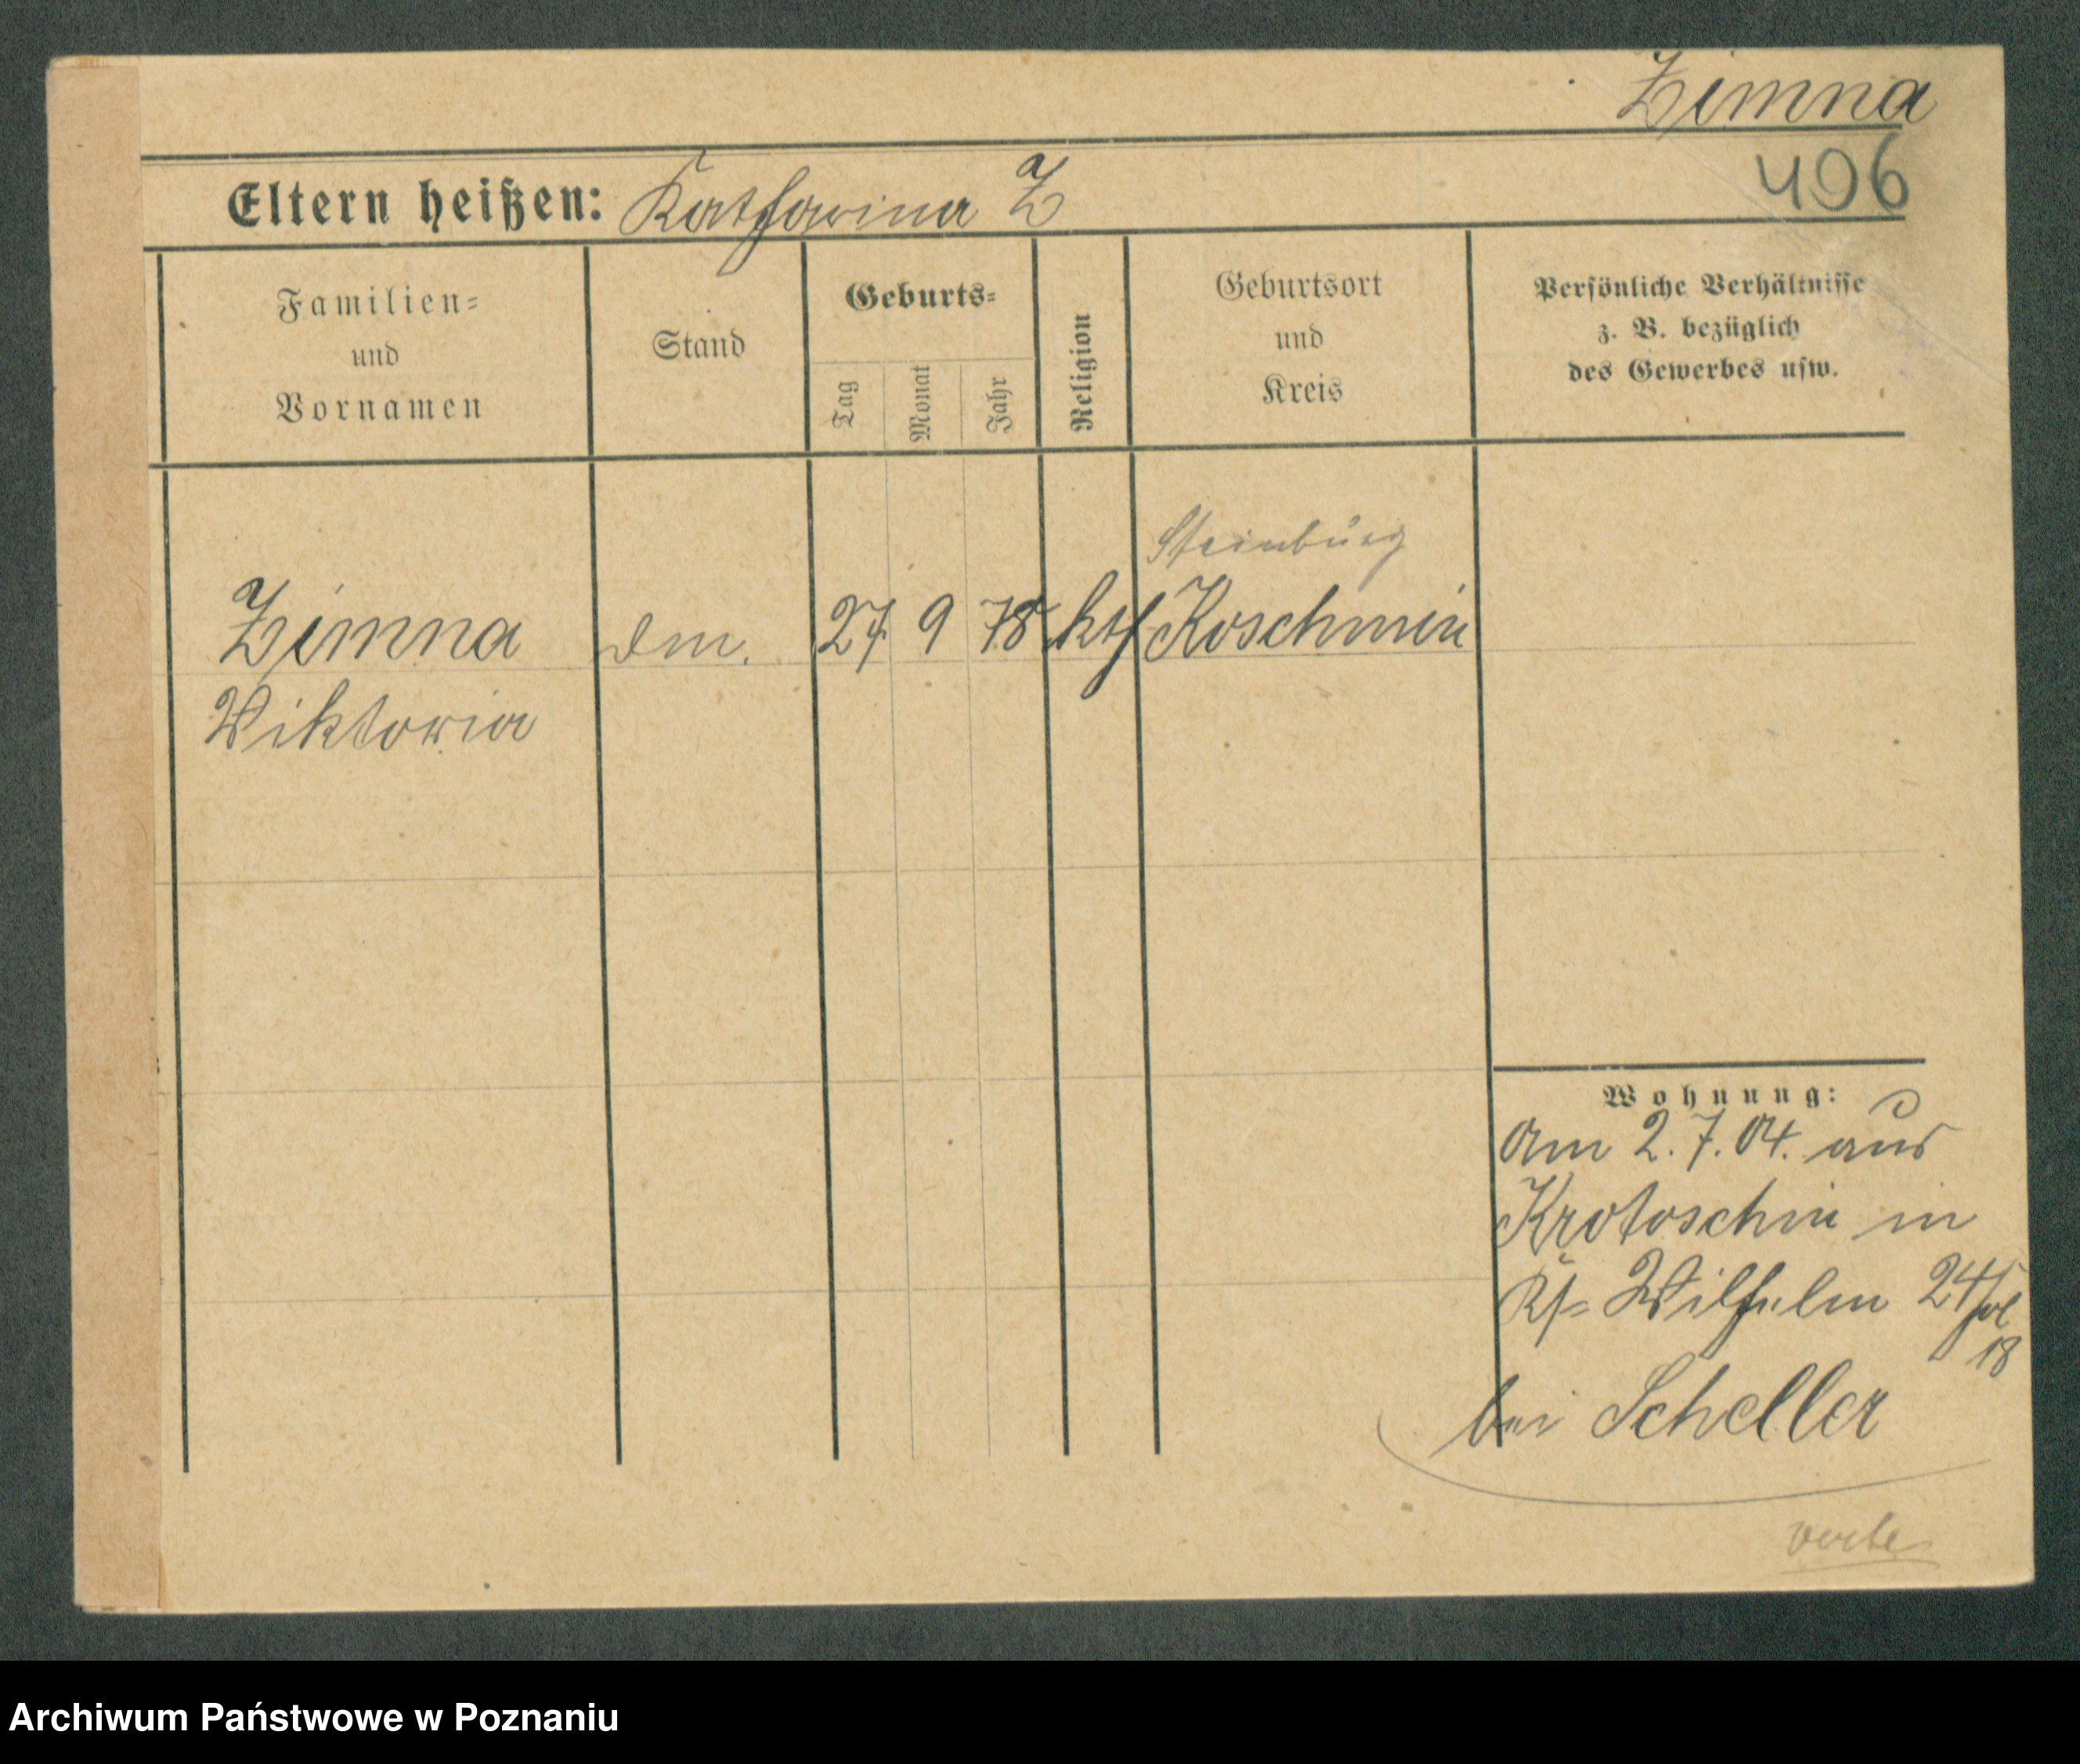 Zimna
496
Eltern heißen: Katharina Z
Familien-
und
Vornamen
Stand
Geburts-
Tag
Monat
Jahr
Religion
Geburtsort
und
Kreis
Persönliche Verhältnisse
z. B. bezüglich
des Gewerbes usw.
Steinburg
Zimna 27 9 78 kth Koschmin
Viktoria
Wohnung:
Am 2. 7. 04. aus
Krotoschin in
Wilhelm 24
18
bei Scheller
verte
Archiwum Państwowe w Poznaniu